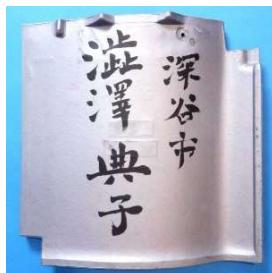 深谷市
澁澤典子